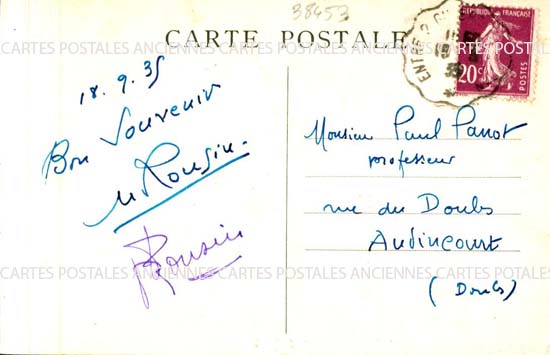 38453
CARTE POSTALE
RÉPUBLIQUE FRANÇAISE
20c
POSTES
18.9.35
Bon Souvenir
M Rousin.
Rousin
Monsieur Paul Parrot
professeur
rue du Doubs
Audincourt
(Doubs)
CARTES POSTALES ANCIENNES CARTES POSTALES ANCIENNES CARTES POSTALES ANCIENNES
CARTES POSTALES ANCIENNES CARTES POSTALES ANCIENNES CARTES POSTALES ANCIENNES